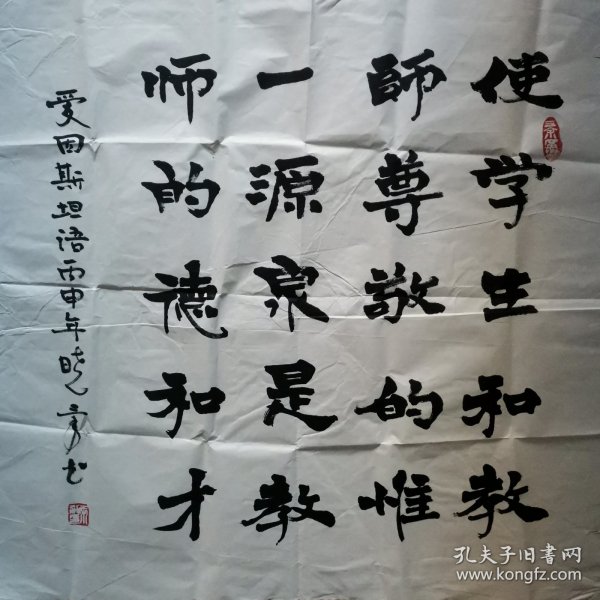 使学生和教
師尊敬的惟
一源泉是教
师的德和才
爱因斯坦语丙申年晓 书
孔夫子旧书网
www.kongfz.com